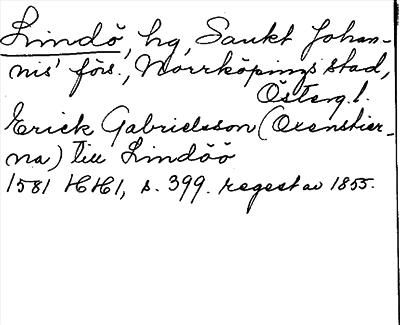 Lindö, hg, Sankt Johan-
nis' förs., Norrköpings stad,
Österg.l.
Erick Gabrielsson (Oxenstier-
na) till Lindöö
1581 HH1, s. 399. regest av 1855.